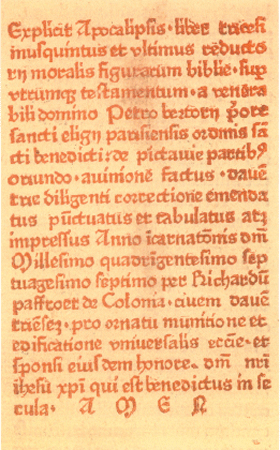 Explicit Apocalipsis · liber tricesi
musquintus et vltimus reducto
rij moralis figurarum biblie · sup
vtrumqꝫ testamentum · a venera
bili domino Petro bertorij p̄ore
sancti eligij parisiensis ordinis sā
cti benedicti: de pictauie partibꝰ
oriundo · auinione factus · dauē
trie diligenti correctione emenda
tus pūctuatus et tabulatus atqꝫ
impressus Anno īcarnatōnis dm̄
Millesimo quadringentesimo sep
tuagesimo septimo per Richardū
paffroet de Colonia · ciuem dauē
triēsem · pro ornatu munitione et
edificatione vniuersalis ecc̄ie · et
sponsi eiusdem honore · dm̄ nr̄i
ihesu xp̄i qui est benedictus in se
cula · A M E N